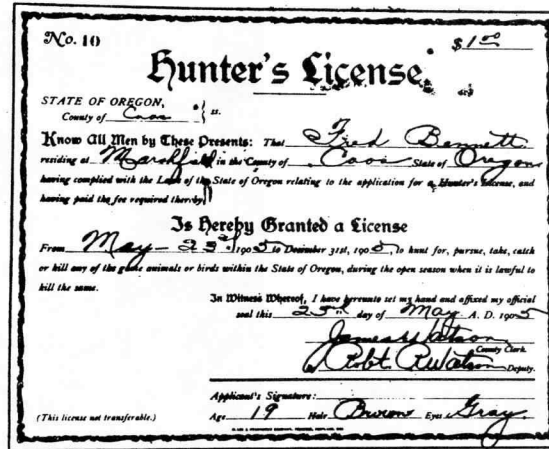 No. 10
$1 00
Hunter's License
STATE OF OREGON,
County of Coos ss.
Know All Men by These Presents: That Fred Bennett
residing at Marshfield in the County of Coos State of Oregon
having complied with the Laws of the State of Oregon relating to the application for a Hunter's License, and
having paid the fee required thereby,
Is Hereby Granted a License
From May - 25th 1905 to December 31st, 1905, to hunt for, pursue, take, catch
or kill any of the game animals or birds within the State of Oregon, during the open season when it is lawful to
kill the same.
In Witness Whereof, I have hereunto set my hand and affixed my official
seal this 25th day of May A. D. 1905
James Watson
County Clerk.
Robt. R Watson Deputy.
Applicant's Signature:
(This license not transferable.) Age 19 Hair Brown Eyes Gray